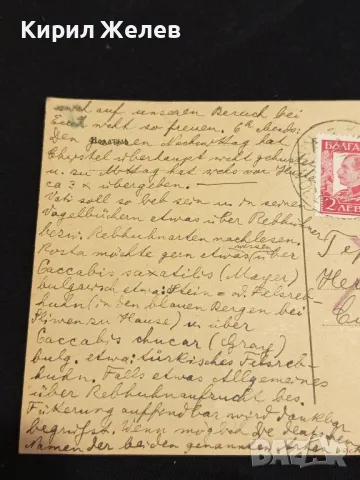 Кирил Желев
und auf unseren Besuch bei
Euch nicht so freuen. 6 Uhr Abds:
Den ganzen Nachmittag hat
Chrystel überhaupt nicht gehustet
u. zu Mittag hat sie nur Husten
ca 3 x übergeben.
Vati soll so lieb sein u. in seinen
Vogelbüchern etwas über Rebhühner
bezw. Rebhuhnarten nachlesen.
Kosta möchte gern etwas wissen über
Caccabis saxatilis (Mayer)
bulgarisch etwa: Stein- od. Felsreb-
huhn (in den blauen Bergen bei
Sliwen zu Hause) u. über
Caccabis chucar (Gray)
bulg. etwa: türkisches Felsreb-
huhn. Falls etwas Allgemeines
über Rebhuhnaufzucht bes.
Fütterung auffindbar wird dankbar
begrüsst. Wenn möglich die deutschen
Namen der beiden genannten
БЪЛГАР
2 ЛЕВА
Гер
Не
bazar